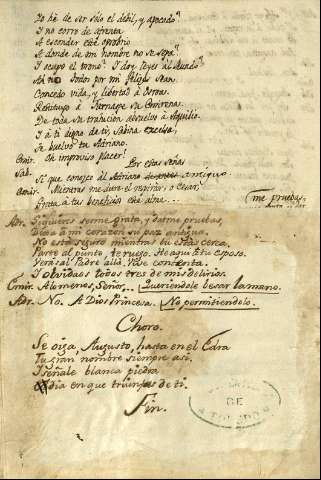 Yo he de ser solo el debil, y apocado?
Y no corro de afrenta
A esconder este oprobio
A donde de mi nombre no se sepa?
Y ocupo el trono? Y doy leyes al Mundo?
Ah no todos por mi felizes sean.
Concedo vida, y libertad à Osroas.
Restituyo à Farnaspe su Emirena.
De toda su traicion absuelvo à Aquilio.
Y à ti digna de ti, Sabina excelsa,
Se buelve tu Adriano.
Emir. Oh improviso placer!
Sab. Por estas señas
Si que conozco al Adriano antiguo
Emir. Mientras me dure el respirar, o Cesar,
Grata, à tus beneficios
me pruebas,
Adr. Si quieres serme grata, y darme pruebas,
Dexa à mi corazon su paz antigua.
No està seguro mientras tu estàs cerca.
Parte al punto, te ruego. He aqui tu esposo.
Verás al Padre alla. Vive contenta.
Y olvidaos todos tres de mis delirios.
Emir. A lo menos, Señor... Queriendole besar la mano.
Adr. No. A Dios Princesa. No permitiendolo.
Choro.
Se oiga, Augusto, hasta en el Edra
Tu gran nombre siempre asi.
Y señale blanca piedra
dia en que triunfas de ti.
Fin.
DE